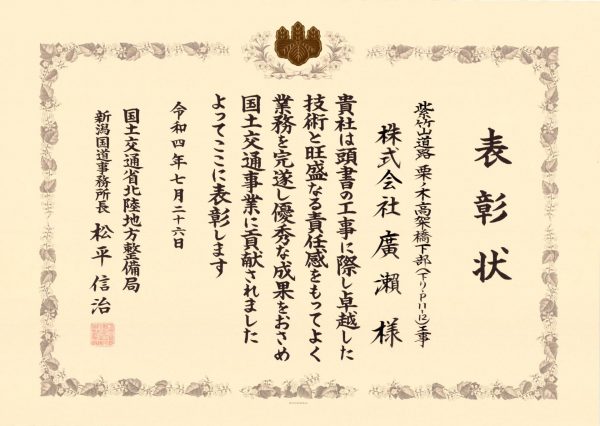 表彰状
紫竹山道路 栗ノ木高架橋下部(下り・P11-12)工事
株式会社 廣瀬 様
貴社は頭書の工事に際し卓越した
技術と旺盛なる責任感をもってよく
業務を完遂し優秀な成果をおさめ
国土交通事業に貢献されました
よってここに表彰します
令和四年七月二十六日
国土交通省北陸地方整備局
新潟国道事務所長 松平 信治